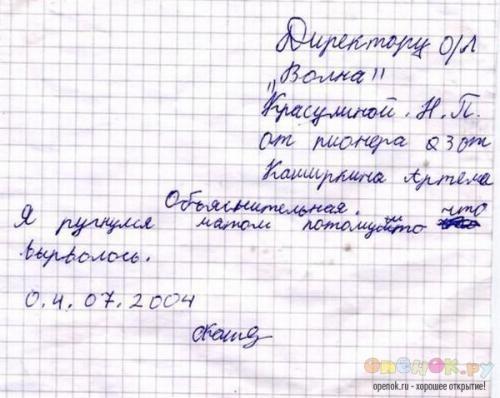 Директору О/Л
„Волна"
Красулиной. Н. П.
от пионера 23 от
Каширкина Артема
Объяснительная.
Я ругнулся матом потомуйто что
вырволось.
0.4.07.2004
опенок.ру
openok.ru - хорошее открытие!